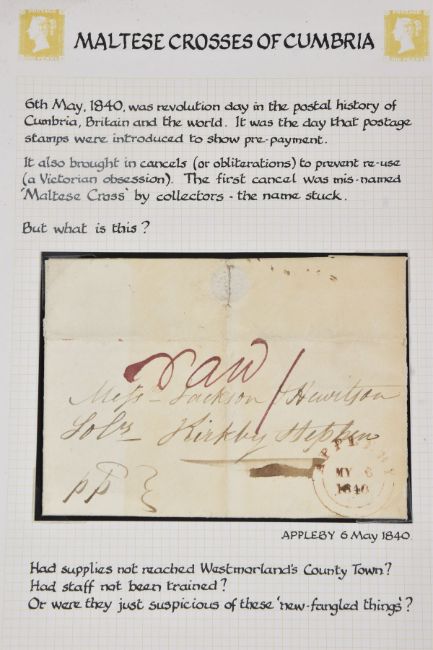 MALTESE CROSSES OF CUMBRIA
6th May, 1840, was revolution day in the postal history of
Cumbria, Britain and the world. It was the day that postage
stamps were introduced to show pre-payment.
It also brought in cancels (or obliterations) to prevent re-use
(a Victorian obsession). The first cancel was mis-named
'Maltese Cross' by collectors - the name stuck.
But what is this?
Paid 1
Messrs Jackson & Hewitson
Solrs Kirkby Stephen
pp
APPLEBY
MY 6
1840
APPLEBY 6 May 1840
Had supplies not reached Westmorland's County Town?
Had staff not been trained?
Or were they just suspicious of these 'new-fangled things'?